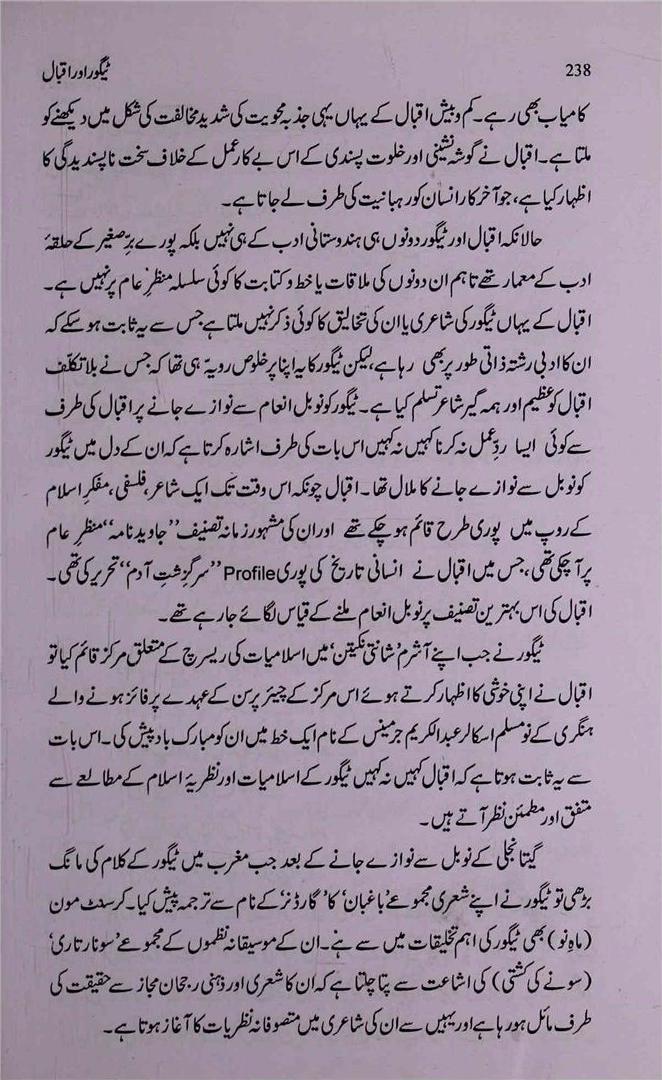 238
ٹیگور اور اقبال
کامیاب بھی رہے۔ کم و بیش اقبال کے یہاں یہی جذبہ محویت کی شدید مخالفت کی شکل میں دیکھنے کو
ملتا ہے۔ اقبال نے گوشہ نشینی اور خلوت پسندی کے اس بے کار عمل کے خلاف سخت ناپسندیدگی کا
اظہار کیا ہے، جو آخر کار انسان کو رہبانیت کی طرف لے جاتا ہے۔
حالانکہ اقبال اور ٹیگور دونوں ہی ہندوستانی ادب کے ہی نہیں بلکہ پورے برِّ صغیر کے حلقۂ
ادب کے معمار تھے تاہم ان دونوں کی ملاقات یا خط و کتابت کا کوئی سلسلہ منظرِ عام پر نہیں ہے۔
اقبال کے یہاں ٹیگور کی شاعری یا ان کی تخالیق کا کوئی ذکر نہیں ملتا ہے جس سے یہ ثابت ہو سکے کہ
ان کا ادبی رشتہ ذاتی طور پر بھی رہا ہے، لیکن ٹیگور کا یہ اپنا پر خلوص رویہّ ہی تھا کہ جس نے بلا تکلّف
اقبال کو عظیم اور ہمہ گیر شاعر تسلم کیا ہے۔ ٹیگور کو نوبل انعام سے نوازے جانے پر اقبال کی طرف
سے کوئی ایسا ردِّ عمل نہ کرنا کہیں نہ کہیں اس بات کی طرف اشارہ کرتا ہے کہ ان کے دل میں ٹیگور
کو نوبل سے نوازے جانے کا ملال تھا۔ اقبال چونکہ اس وقت تک ایک شاعر، فلسفی، مفکرِ اسلام
کے روپ میں پوری طرح قائم ہو چکے تھے اور ان کی مشہور زمانہ تصنیف ’’جاوید نامہ‘‘ منظرِ عام
پر آ چکی تھی، جس میں اقبال نے انسانی تاریخ کی پوری Profile ’’سرگزشتِ آدم‘‘ تحریر کی تھی۔
اقبال کی اس بہترین تصنیف پر نوبل انعام ملنے کے قیاس لگائے جا رہے تھے۔
ٹیگور نے جب اپنے آشرم ’شانتی نکیتن‘ میں اسلامیات کی ریسرچ کے متعلق مرکز قائم کیا تو
اقبال نے اپنی خوشی کا اظہار کرتے ہوئے اس مرکز کے چیئر پرسن کے عہدے پر فائز ہونے والے
ہنگری کے نو مسلم اسکالر عبدالکریم جرمینس کے نام ایک خط میں ان کو مبارک باد پیش کی۔ اس بات
سے یہ ثابت ہوتا ہے کہ اقبال کہیں نہ کہیں ٹیگور کے اسلامیات اور نظریۂ اسلام کے مطالعے سے
متفق اور مطمئن نظر آتے ہیں۔
گیتانجلی کے نوبل سے نوازے جانے کے بعد جب مغرب میں ٹیگور کے کلام کی مانگ
بڑھی تو ٹیگور نے اپنے شعری مجموعے ’باغبان‘ کا ’گارڈنر‘ کے نام سے ترجمہ پیش کیا۔ کرسنٹ مون
(ماہِ نو) بھی ٹیگور کی اہم تخلیقات میں سے ہے۔ ان کے موسیقانہ نظموں کے مجموعے ’سونار تاری‘
(سونے کی کشتی) کی اشاعت سے پتا چلتا ہے کہ ان کا شعری اور ذہنی رجحان مجاز سے حقیقت کی
طرف مائل ہو رہا ہے اور یہیں سے ان کی شاعری میں متصوفانہ نظریات کا آغاز ہوتا ہے۔